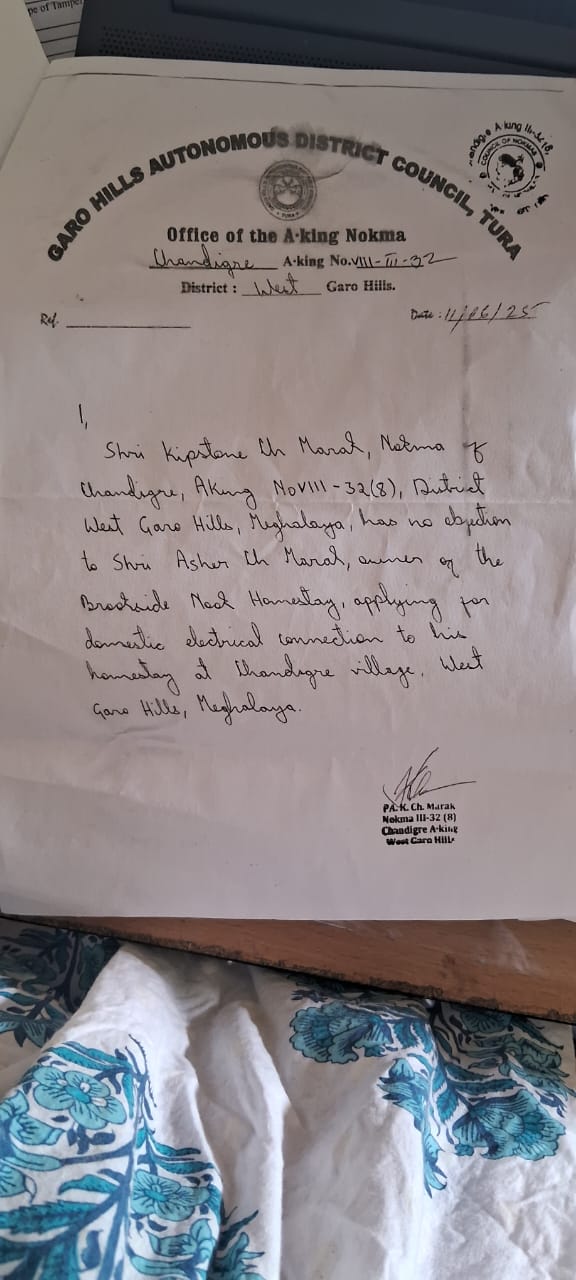 pe of Tamper
GARO HILLS AUTONOMOUS DISTRICT COUNCIL, TURA
COUNCIL OF NOKMAS
Office of the A·king Nokma
Chandigre A·king No. VIII-III-32
District : West Garo Hills.
Ref.
Date : 11/06/25
I,
Shri Kipstone Ch Marak, Nokma of
Chandigre, AKing NoVIII-32(8), District
West Garo Hills, Meghalaya, has no objection
to Shri Asher Ch Marak, owner of the
Brookside Nook Homestay, applying for
domestic electrical connection to his
homestay at Chandigre village, West
Garo Hills, Meghalaya.
PA. K. Ch. Marak
Nokma III-32 (8)
Chandigre A·king
West Garo Hills